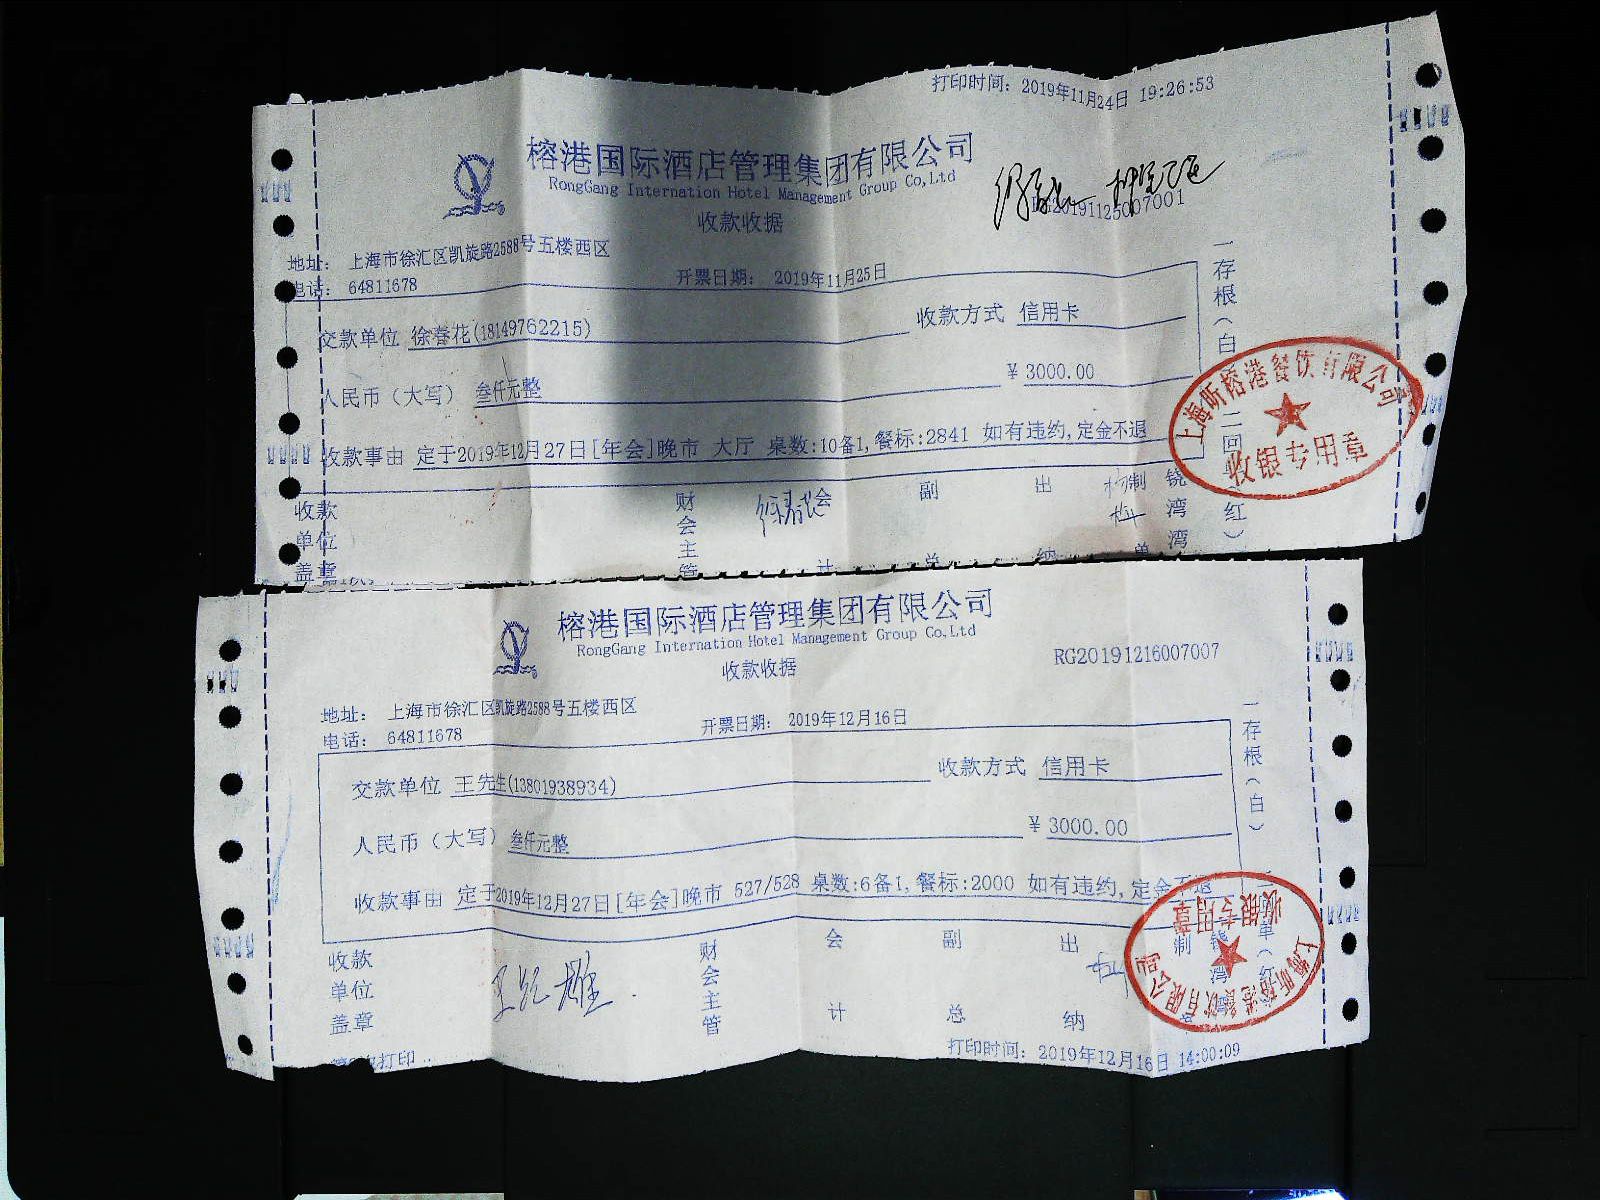 打印时间: 2019年11月24日 19:26:53
榕港国际酒店管理集团有限公司
RongGang Internation Hotel Management Group Co,Ltd
收款收据
20191125007001
地址: 上海市徐汇区凯旋路2588号五楼西区
电话: 64811678
开票日期: 2019年11月25日
交款单位 徐春花(18149762215)
收款方式 信用卡
人民币（大写） 叁仟元整
¥ 3000.00
收款事由 定于2019年12月27日[年会]晚市 大厅 桌数:10备1,餐标:2841 如有违约,定金不退
一存根(白) 二回 (红)
上海昕榕港餐饮有限公司
收银专用章
收款单位盖章 财会主管 徐春花 会计 副总 出纳 制单 饶湾湾
榕港国际酒店管理集团有限公司
RongGang Internation Hotel Management Group Co,Ltd
收款收据
RG20191216007007
地址: 上海市徐汇区凯旋路2588号五楼西区
电话: 64811678
开票日期: 2019年12月16日
交款单位 王先生(13801938934)
收款方式 信用卡
人民币（大写） 叁仟元整
¥ 3000.00
收款事由 定于2019年12月27日[年会]晚市 527/528 桌数:6备1,餐标:2000 如有违约,定金不退
一存根(白)
上海昕榕港餐饮有限公司
收银专用章
收款单位盖章 财会主管 会计 副总 出纳 制
打印时间: 2019年12月16日 14:00:09